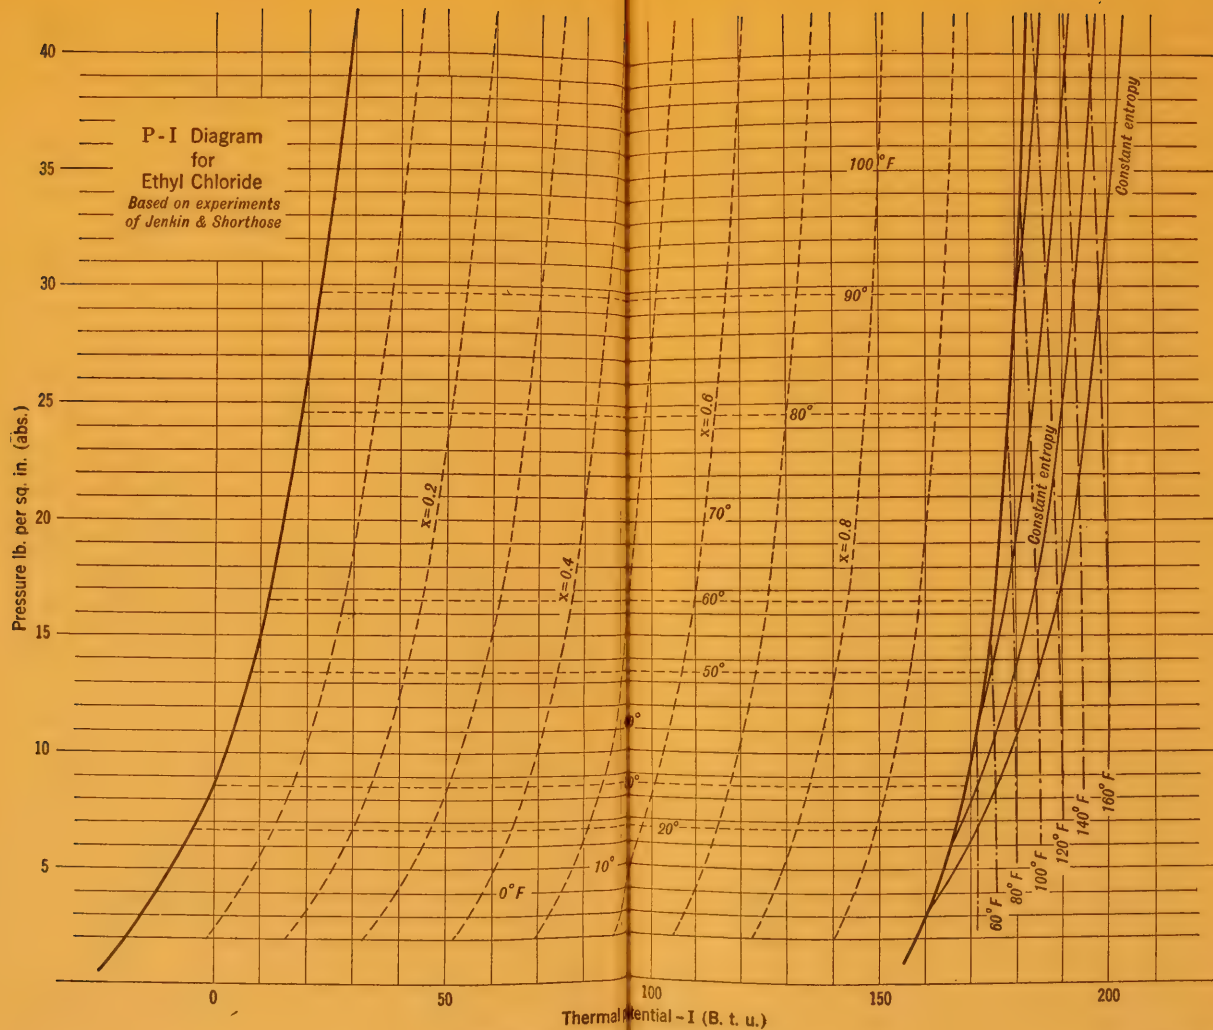 P-I Diagram
for
Ethyl Chloride
Based on experiments
of Jenkin & Shorthose
Pressure lb. per sq. in. (abs.)
40
35
30
25
20
15
10
5
100°F
90°
80°
70°
60°
50°
0°
0°
20°
10°
0°F
x=0.2
x=0.4
x=0.6
x=0.8
Constant entropy
Constant entropy
60°F
80°F
100°F
120°F
140°F
160°F
0
50
100
150
200
Thermal ential - I (B. t. u.)